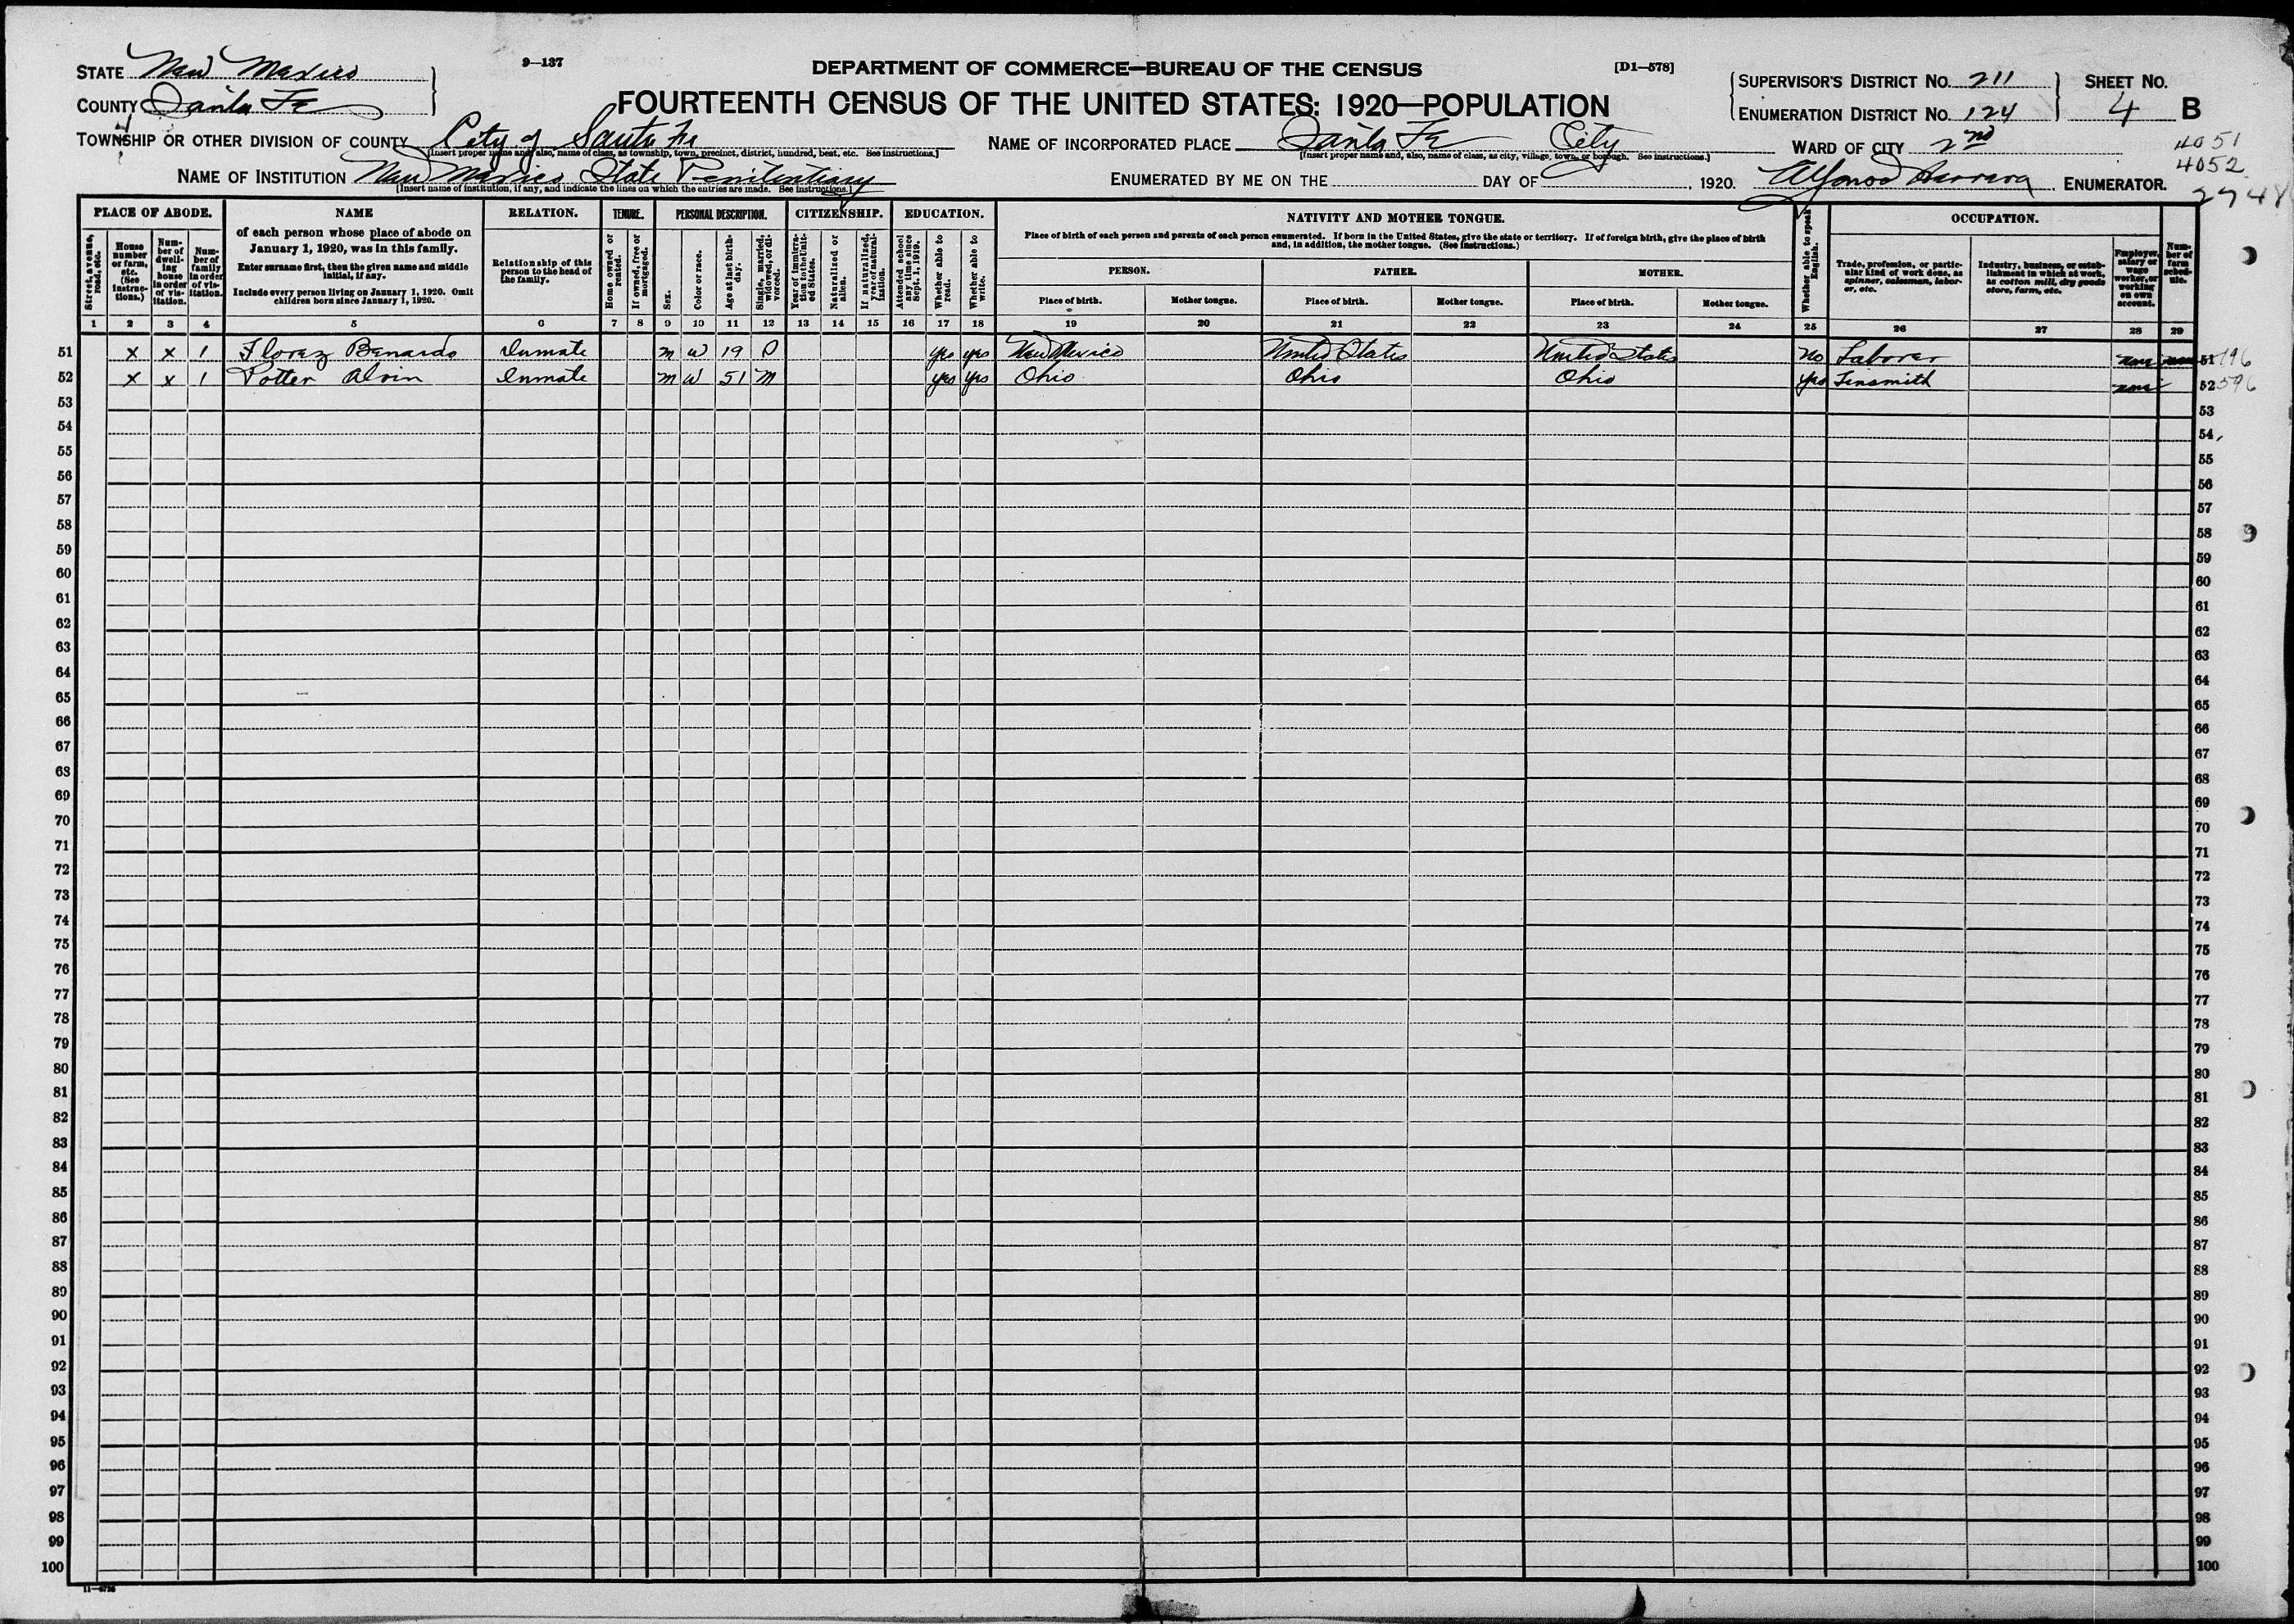 STATE New Mexico
COUNTY Santa Fe
9—137
DEPARTMENT OF COMMERCE—BUREAU OF THE CENSUS
[D1—578]
FOURTEENTH CENSUS OF THE UNITED STATES: 1920—POPULATION
SUPERVISOR'S DISTRICT NO. 211
ENUMERATION DISTRICT NO. 124
SHEET NO. 4 B
TOWNSHIP OR OTHER DIVISION OF COUNTY City of Santa Fe
[Insert proper name and, also, name of class, as township, town, precinct, district, hundred, beat, etc. See instructions.]
NAME OF INCORPORATED PLACE Santa Fe City
[Insert proper name and, also, name of class, as city, village, town, or borough. See instructions.]
WARD OF CITY 2nd
4051
4052
2748
NAME OF INSTITUTION New Mexico State Penitentiary
[Insert name of institution, if any, and indicate the lines on which the entries are made. See instructions.]
ENUMERATED BY ME ON THE DAY OF , 1920. Alfonso Herrera ENUMERATOR.
PLACE OF ABODE.
Street, avenue, road, etc.
House number or farm, etc. (See instructions.)
Number of dwelling house in order of visitation.
Number of family in order of visitation.
NAME
of each person whose place of abode on January 1, 1920, was in this family.
Enter surname first, then the given name and middle initial, if any.
Include every person living on January 1, 1920. Omit children born since January 1, 1920.
RELATION.
Relationship of this person to the head of the family.
TENURE.
Home owned or rented.
If owned, free or mortgaged.
PERSONAL DESCRIPTION.
Sex.
Color or race.
Age at last birthday.
Single, married, widowed, or divorced.
CITIZENSHIP.
Year of immigration to the United States.
Naturalized or alien.
If naturalized, year of naturalization.
EDUCATION.
Attended school any time since Sept. 1, 1919.
Whether able to read.
Whether able to write.
NATIVITY AND MOTHER TONGUE.
Place of birth of each person and parents of each person enumerated. If born in the United States, give the state or territory. If of foreign birth, give the place of birth and, in addition, the mother tongue. (See instructions.)
PERSON. FATHER. MOTHER.
Place of birth. Mother tongue. Place of birth. Mother tongue. Place of birth. Mother tongue.
Whether able to speak English.
OCCUPATION.
Trade, profession, or particular kind of work done, as spinner, salesman, laborer, etc.
Industry, business, or establishment in which at work, as cotton mill, dry goods store, farm, etc.
Employer, salary or wage worker, or working on own account.
Number of farm schedule.
1 2 3 4 5 6 7 8 9 10 11 12 13 14 15 16 17 18 19 20 21 22 23 24 25 26 27 28 29
51 x x 1 Florez Benardo Inmate m w 19 yes yes New Mexico United States United States No Laborer 51
52 x x 1 Potter Alvin Inmate m w 51 m yes yes Ohio Ohio Ohio yes Tinsmith 52 596
53 53
54 54
55 55
56 56
57 57
58 58
59 59
60 60
61 61
62 62
63 63
64 64
65 65
66 66
67 67
68 68
69 69
70 70
71 71
72 72
73 73
74 74
75 75
76 76
77 77
78 78
79 79
80 80
81 81
82 82
83 83
84 84
85 85
86 86
87 87
88 88
89 89
90 90
91 91
92 92
93 93
94 94
95 95
96 96
97 97
98 98
99 99
100 100